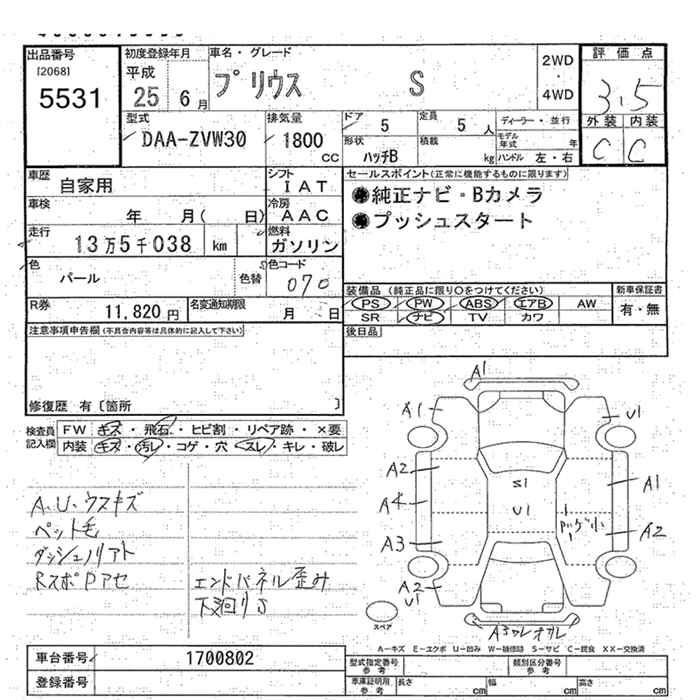 出品番号 初度登録年月 車名・グレード 2WD ・ 4WD 評価点
[2068] 平成
5531 25 6月 プリウス S 3.5
型式 排気量 ドア 定員 ディーラー・並行 外装 内装
DAA-ZVW30 1800 CC 5 5 人 モデル年式 年 C C
形状 積載
ハッチB kg ハンドル 左・右
車歴 自家用 シフト IAT セールスポイント(正常に機能するものに限ります)
車検 年 月( 日) 冷房 AAC ●純正ナビ・Bカメラ
走行 13万5千038 km 燃料 ガソリン ●プッシュスタート
色 パール 色替 色コード 070
装備品(純正品に限り○をつけてください) 新車保証書
R券 11,820円 名変通知期限 月 日 PS PW ABS エアB AW 有・無
SR ナビ TV カワ
注意事項申告欄(不具合内容等は具体的に記入して下さい) 後日品
修復歴 有〔箇所 〕
検査員記入欄 FW キズ・飛石・ヒビ割・リペア跡・×要
内装 キズ・汚レ・コゲ・穴・スレ・キレ・破レ
A1
A1 U1
A2 S1 A1
A4 U1
A3 A2
A2
U1
A.U.ウスキズ
ペット毛
ダッシュノリアト
エンドパネル歪み
下廻りS
スペア
A=キズ E=エクボ U=凹み W=補修跡 S=サビ C=腐食 XX=交換済
車台番号 1700802 型式指定番号 参考 類別区分番号 参考
登録番号 車庫証明用 参考 長さ cm 幅 cm 高さ cm